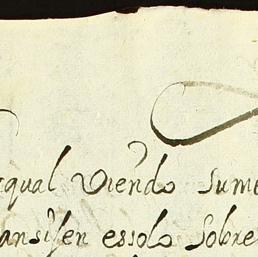 qual Viendo sume
ansi, en essolo sobre